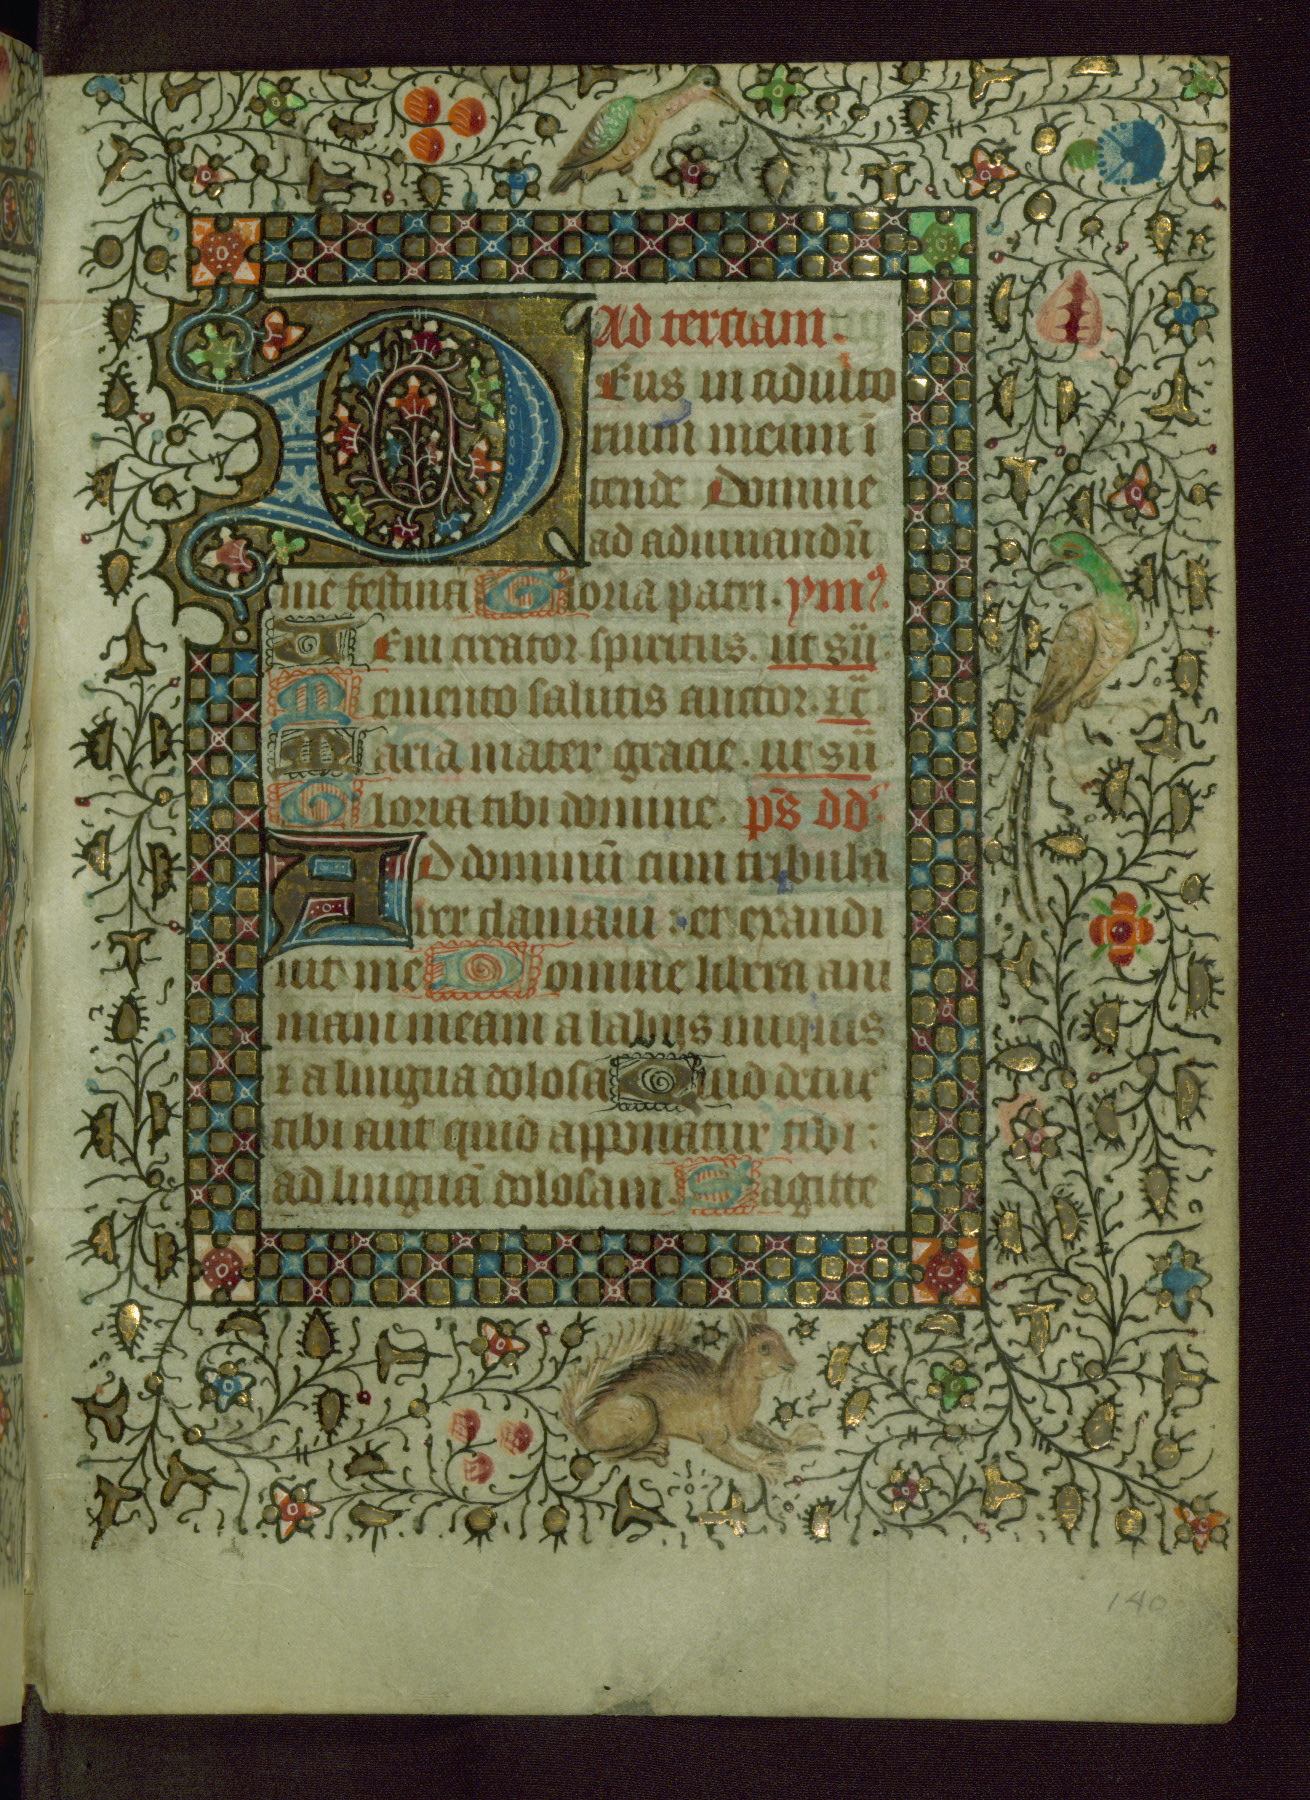 Ad terciam.
Deus in adiuto
rium meum ī
tende Domine
ad adiuuandū
me festina Gloria patri. ymꝰ.
Ueni creator spiritus. ut sū
Memento salutis auctor. ⁊c̄
Maria mater gracie. ut sū
Gloria tibi domine. ps̄ dd̾
AD dominū cum tribula
rer clamaui : et exaudi
uit me Domine libera ani
mam meam a labijs iniquis
⁊ a lingua dolosa Quid detur
tibi aut quid apponatur tibi :
ad linguā dolosam. Sagitte
140